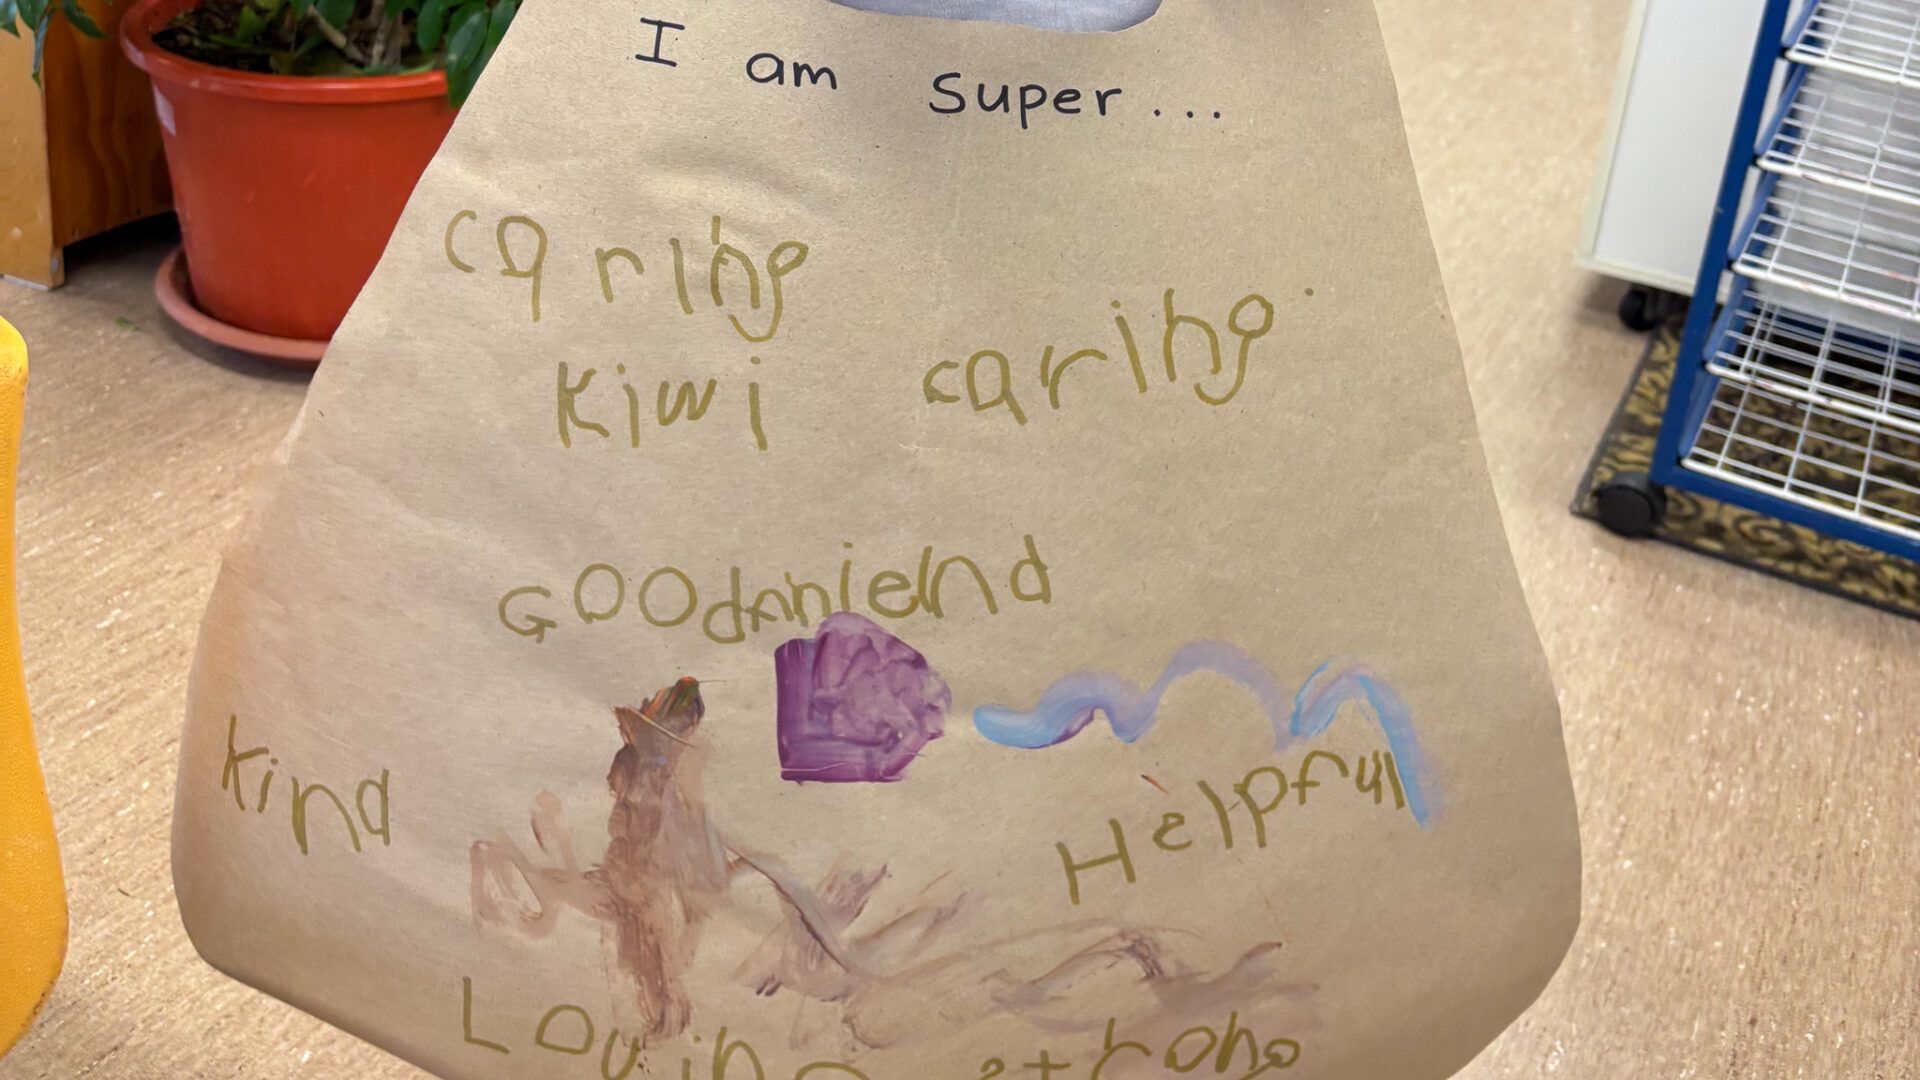 I am super...
caring
kiwi caring
GOOd
kind Helpful
Loving strong